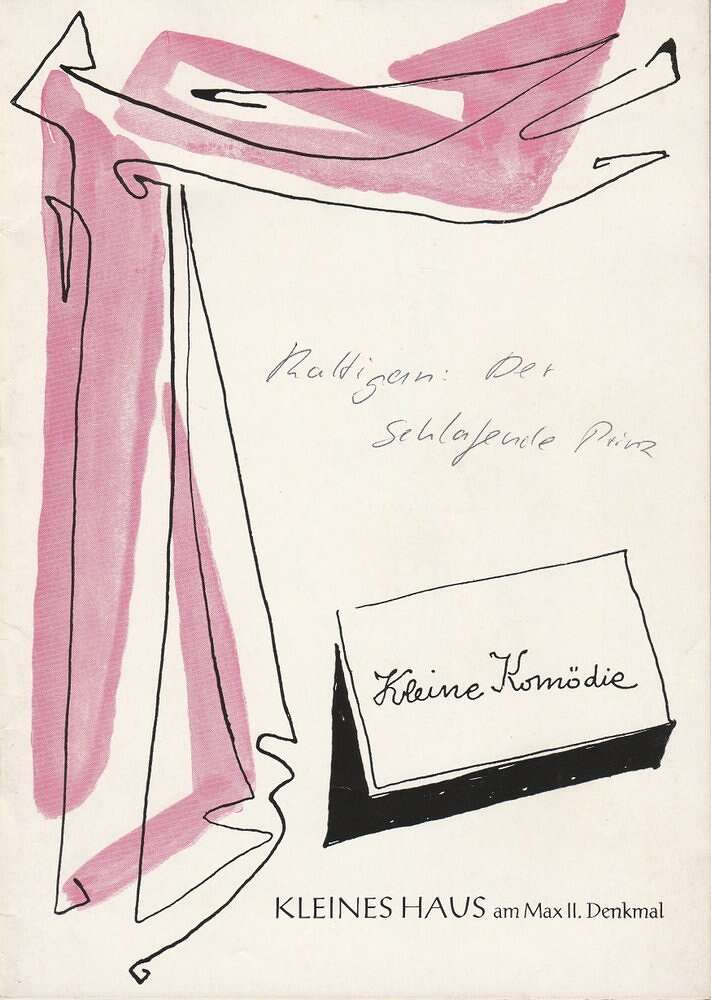 Rattigan: Der
Schlafende Prinz
Kleine Komödie
KLEINES HAUS am Max II. Denkmal